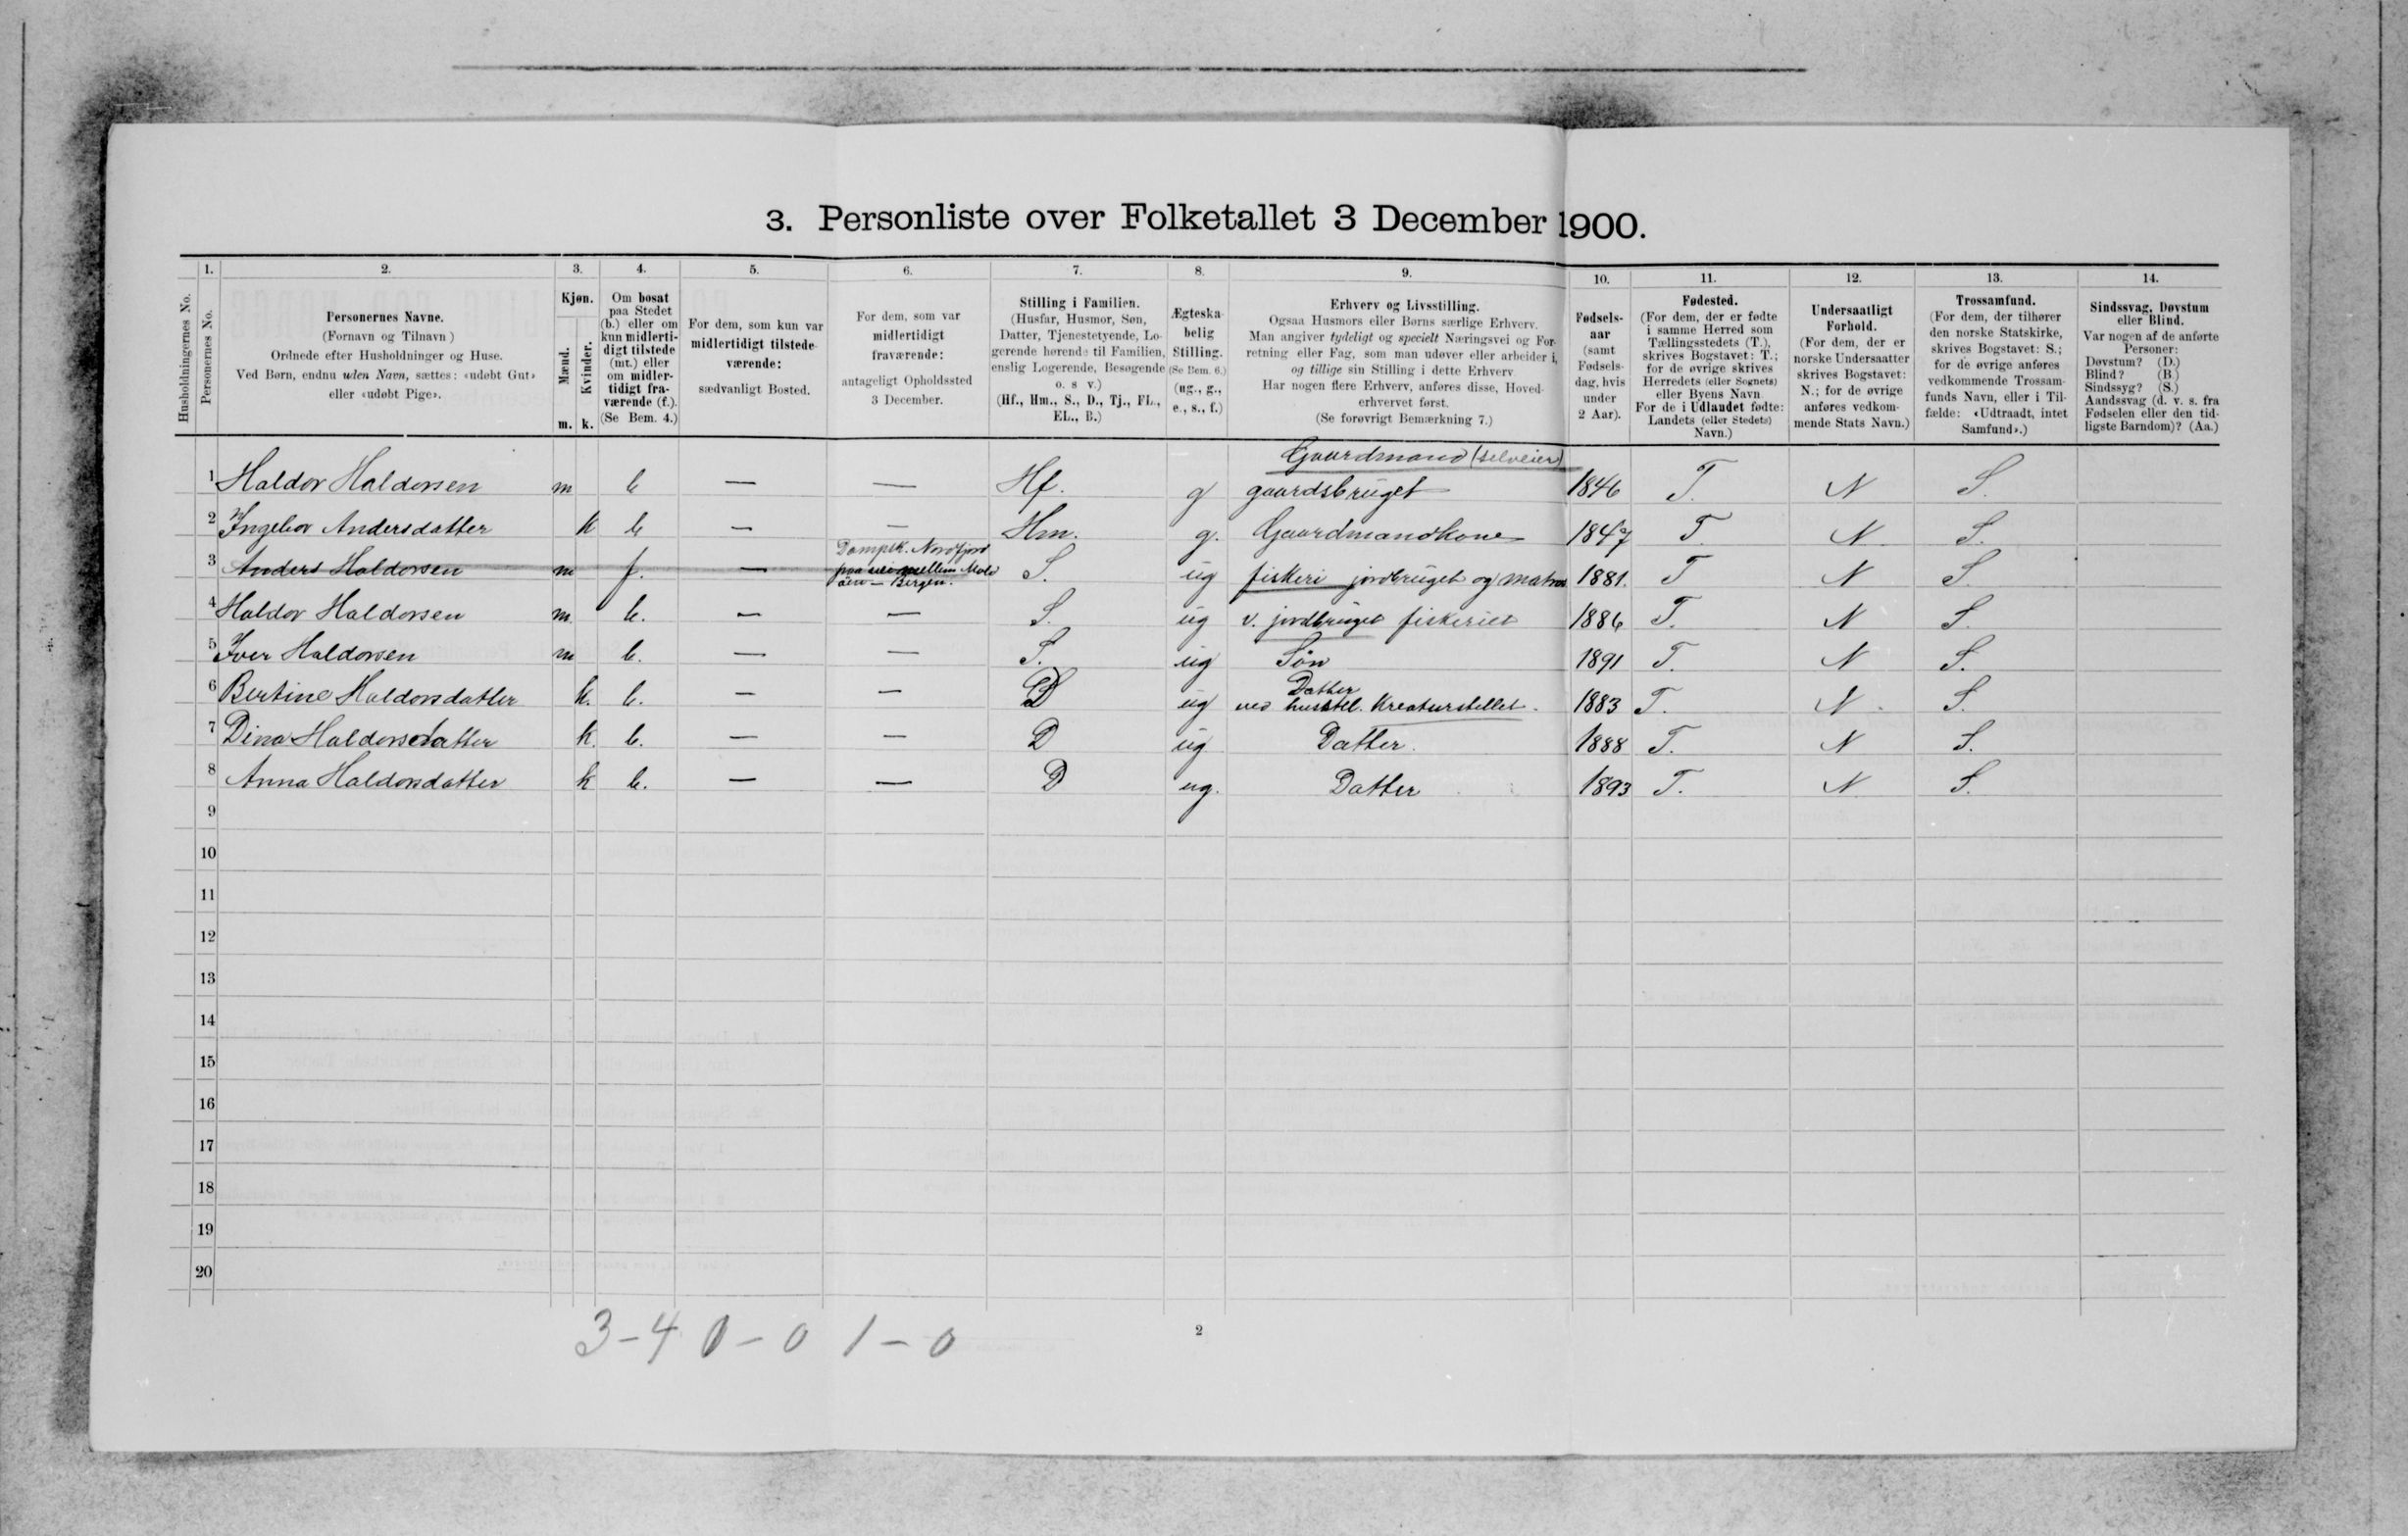 3. Personliste over Folketallet 3 December 1900.
1. 2. 3. 4. 5. 6. 7. 8. 9. 10. 11. 12. 13. 14.
Husholdningernes No.
Personernes No.
Personernes Navne.
(Fornavn og Tilnavn)
Ordnede efter Husholdninger og Huse.
Ved Børn, endnu uden Navn, sættes: «udøbt Gut»
eller «udøbt Pige».
Kjøn.
Mænd.
Kvinder.
m. k.
Om bosat
paa Stedet
(b.) eller om
kun midlerti-
digt tilstede
(mt.) eller
om midler-
tidigt fra-
værende (f.).
(Se Bem. 4.)
For dem, som kun var
midlertidigt tilstede-
værende:
sædvanligt Bosted.
For dem, som var
midlertidigt
fraværende:
antageligt Opholdssted
3 December.
Stilling i Familien.
(Husfar, Husmor, Søn,
Datter, Tjenestetyende, Lo-
gerende hørende til Familien,
enslig Logerende, Besøgende
o. s v.)
(Hf., Hm., S., D., Tj., FL.,
EL., B.)
Ægteska-
belig
Stilling.
(Se Bem. 6.)
(ug., g.,
e., s., f.)
Erhverv og Livsstilling.
Ogsaa Husmors eller Børns særlige Erhverv.
Man angiver tydeligt og specielt Næringsvei og For-
retning eller Fag, som man udøver eller arbeider i,
og tillige sin Stilling i dette Erhverv
Har nogen flere Erhverv, anføres disse, Hoved-
erhvervet først.
(Se forøvrigt Bemærkning 7.)
Fødsels-
aar
(samt
Fødsels-
dag, hvis
under
2 Aar).
Fødested.
(For dem, der er fødte
i samme Herred som
Tællingsstedets (T.),
skrives Bogstavet: T.;
for de øvrige skrives
Herredets (eller Sognets)
eller Byens Navn
For de i Udlandet fødte:
Landets (eller Stedets)
Navn.)
Undersaatligt
Forhold.
(For dem, der er
norske Undersaatter
skrives Bogstavet:
N.; for de øvrige
anføres vedkom-
mende Stats Navn.)
Trossamfund.
(For dem, der tilhører
den norske Statskirke,
skrives Bogstavet: S.;
for de øvrige anføres
vedkommende Trossam-
funds Navn, eller i Til-
fælde: «Udtraadt, intet
Samfund».)
Sindssvag, Døvstum
eller Blind.
Var nogen af de anførte
Personer:
Døvstum? (D.)
Blind? (B.)
Sindssyg? (S.)
Aandssvag (d. v. s. fra
Fødselen eller den tid-
ligste Barndom)? (Aa.)
Gaardmand (selveier)
1 Haldor Haldorsen m b — — Hf. g gaardsbruget 1846 T. N S.
2 Ingebor Andersdatter k b — — Hm. g. Gaardmandkone 1847 T N S.
Dampsk. Nordfjord
3 Anders Haldorsen m f. — paa mellem Mold S. ug fiskeri jordbruget og matros 1881. T N S
øen — Bergen.
4 Haldor Haldorsen m. b. — — S. ug v. jordbruget fiskeriet 1886 T. N S.
5 Iver Haldorsen m b. — — S. ug Søn 1891 T. N S.
Datter
6 Bertine Haldorsdatter k. b. — — D ug ved husstel. Kreaturstellet. 1883 T. N. S.
7 Dina Haldorsdatter k. b. — — D ug Datter. 1888 T. N S.
8 Anna Haldorsdatter k b. — — D ug. Datter 1893 T. N S.
9
10
11
12
13
14
15
16
17
18
19
20
3-4 0-0 1-0
2